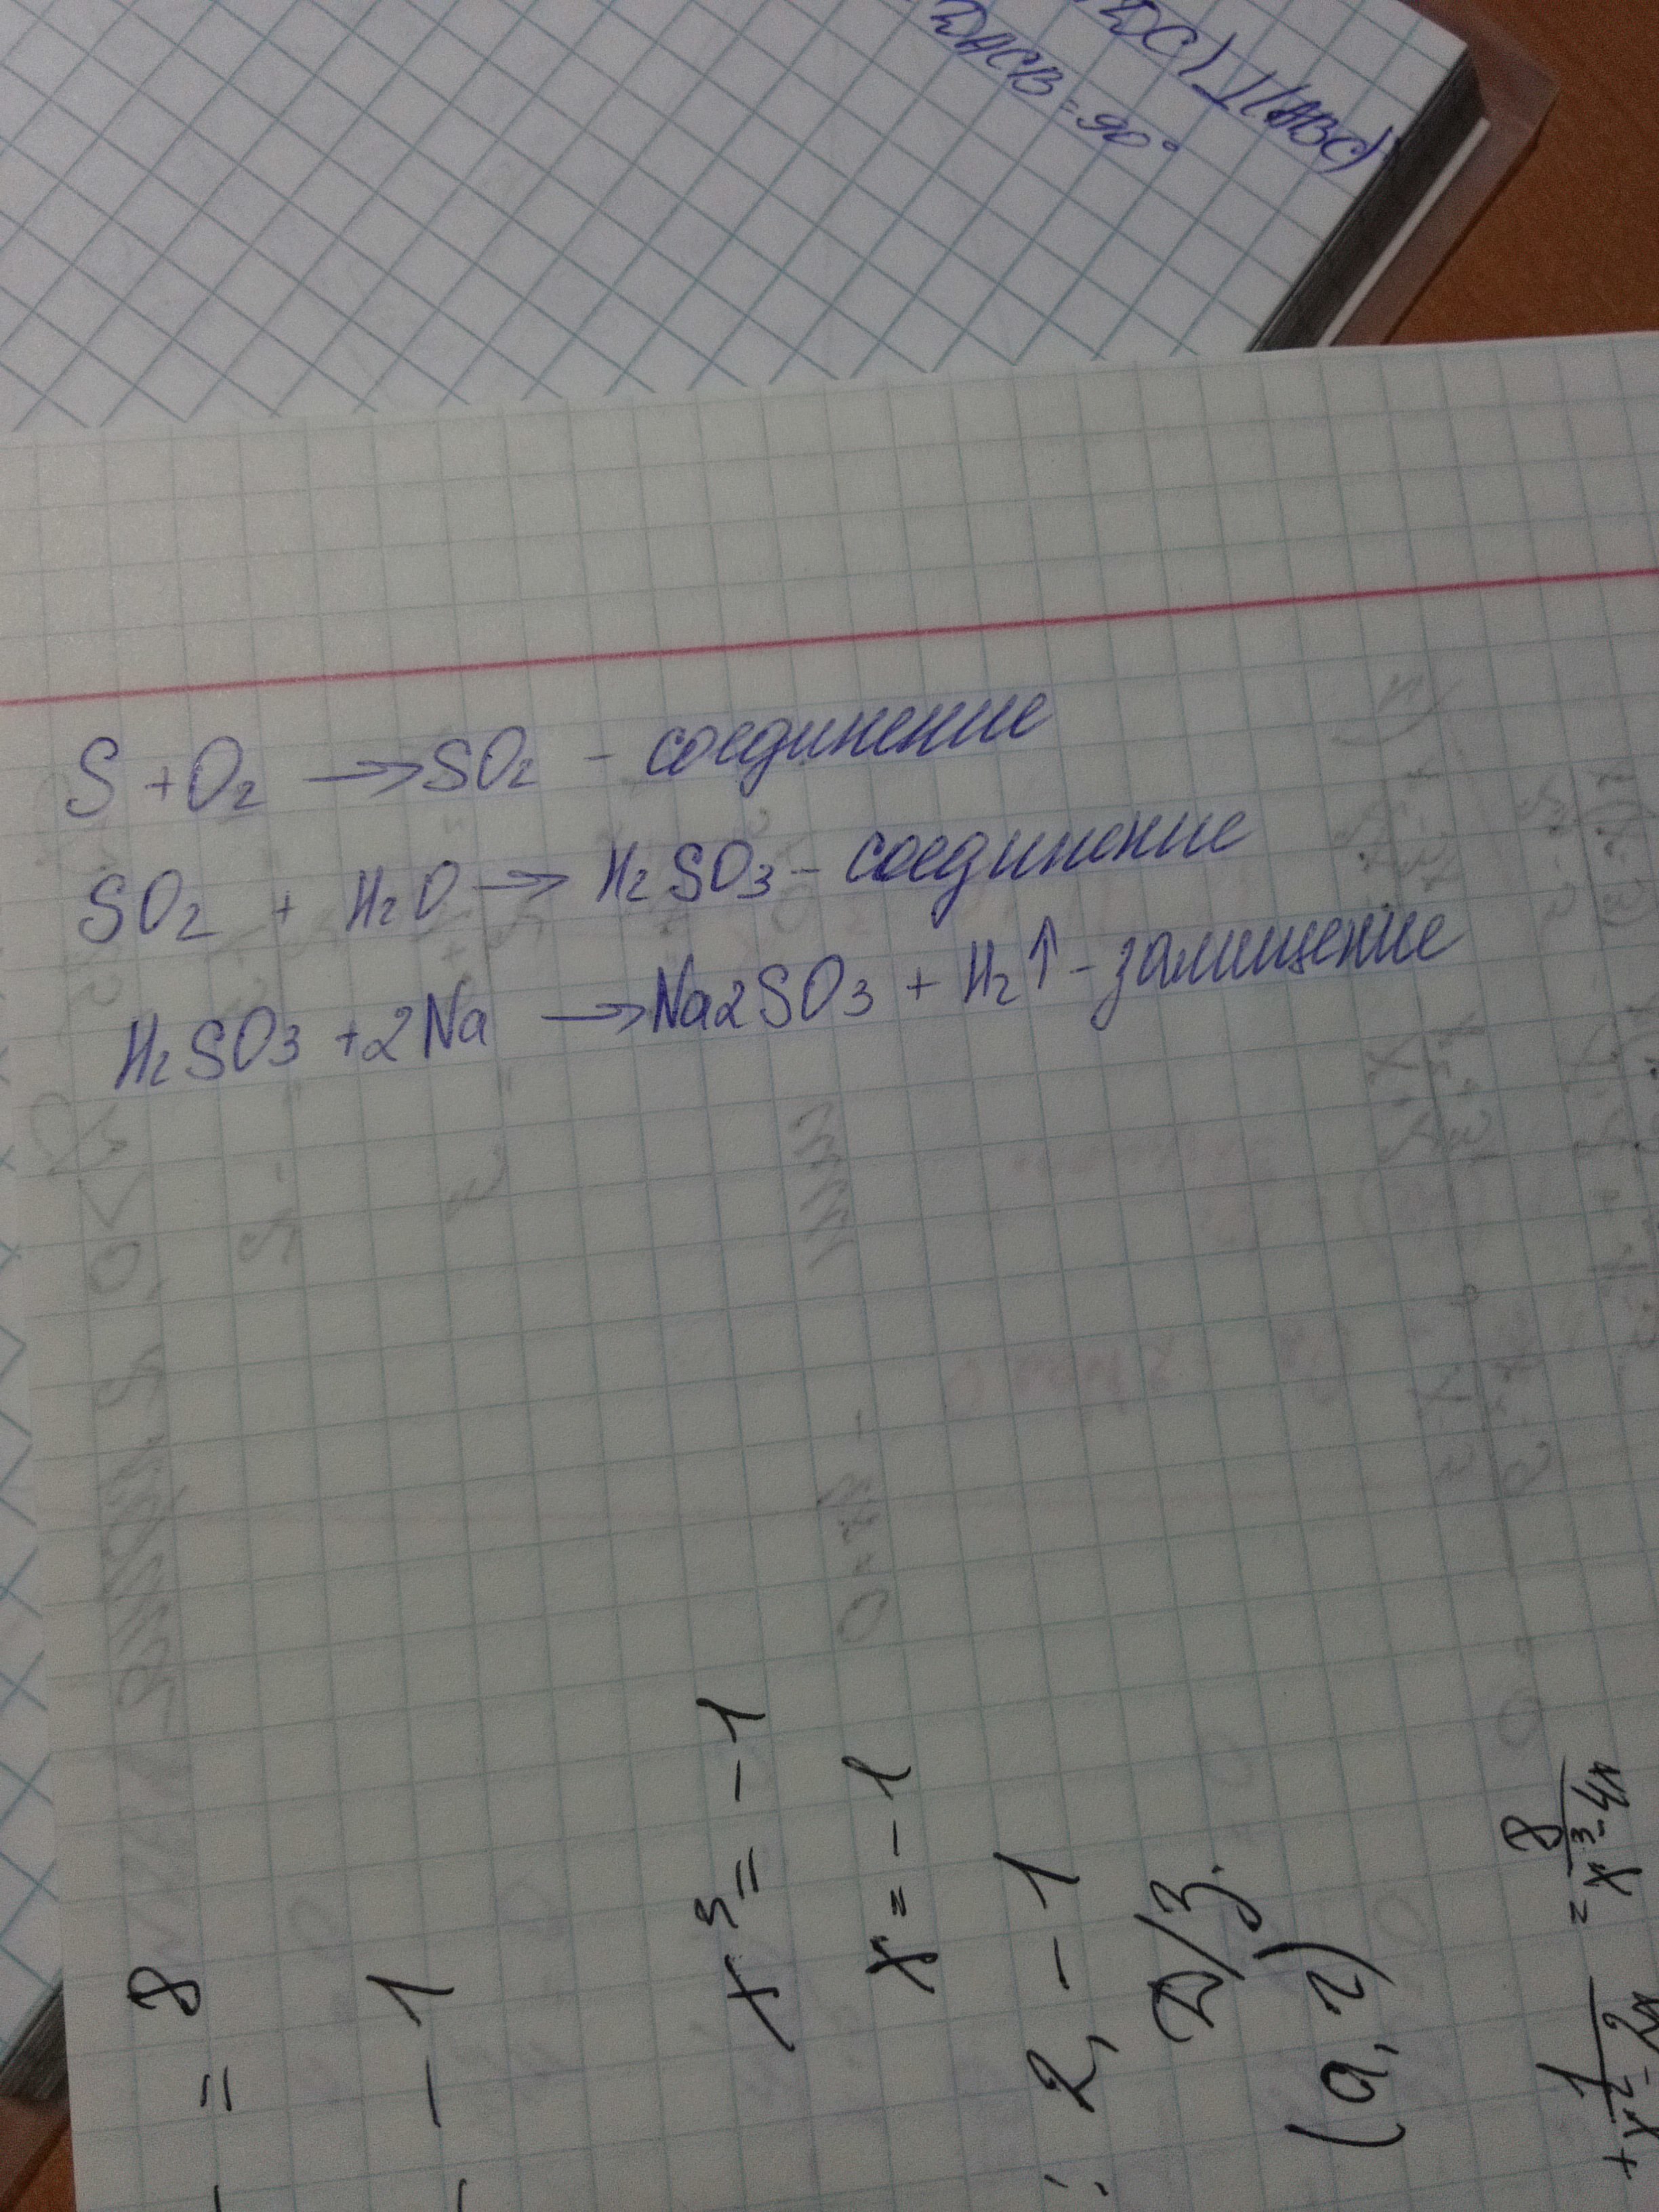 DC)⊥(ABC)
DACB=90°
S + O₂ → SO₂ - соединение
SO₂ + H₂O → H₂SO₃ - соединение
H₂SO₃ + 2Na → Na2SO₃ + H₂↑ - замищение
= 8
- 1
x³ = -1
x = -1
: 2, -1
D/З.
(а, г)
+ 1/x² - 2x = 8/x³ - 4x